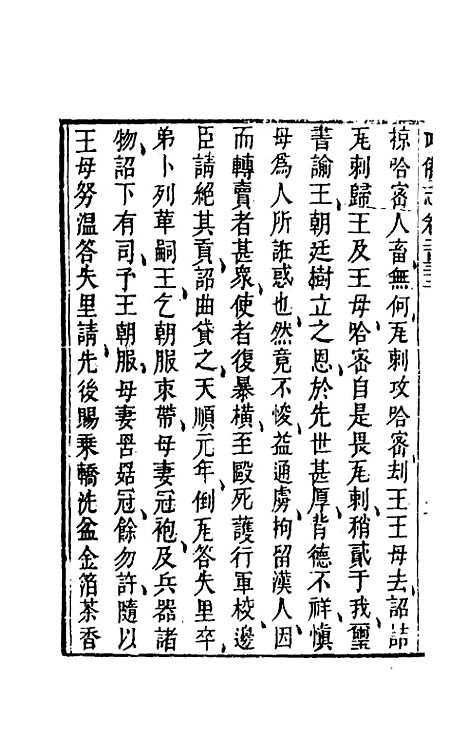 掠哈密人畜無何瓦剌攻哈密刦王王母去詔詰
瓦剌歸王及王母哈密自是畏瓦剌稍貳于我璽
書諭王朝廷樹立之恩於先世甚厚背德不祥慎
毋爲人所誑惑也然竟不悛益通虜拘留漢人因
而轉賣者甚衆使者復暴橫至毆死護行軍校邊
臣請絕其貢詔曲貸之天順元年倒瓦答失里卒
弟卜列革嗣王乞朝服束帶母妻冠袍及兵器諸
物詔下有司予王朝服母妻罟罛冠餘勿許隨以
王母努溫答失里請先後賜乘轎洗盆金箔茶香